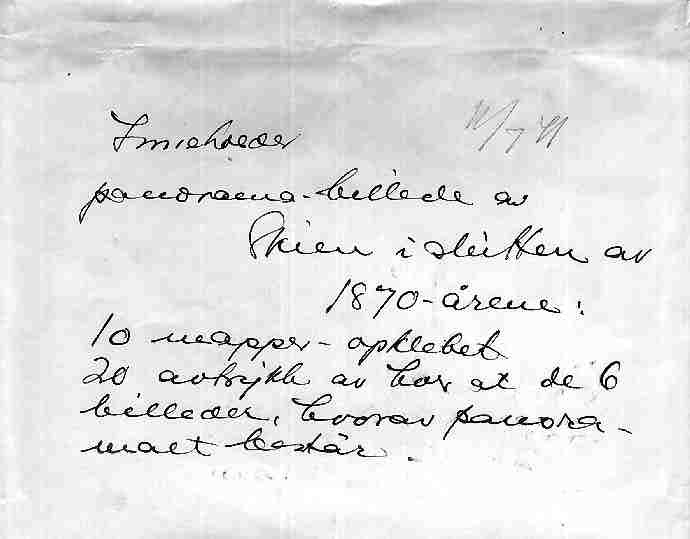 Inneholder
11/7 41
panorama-billede av
Skien i slutten av
1870-årene:
10 mapper - opklebet
20 avtrykk av hver at de 6
billeder, hvorav panora-
maet består.